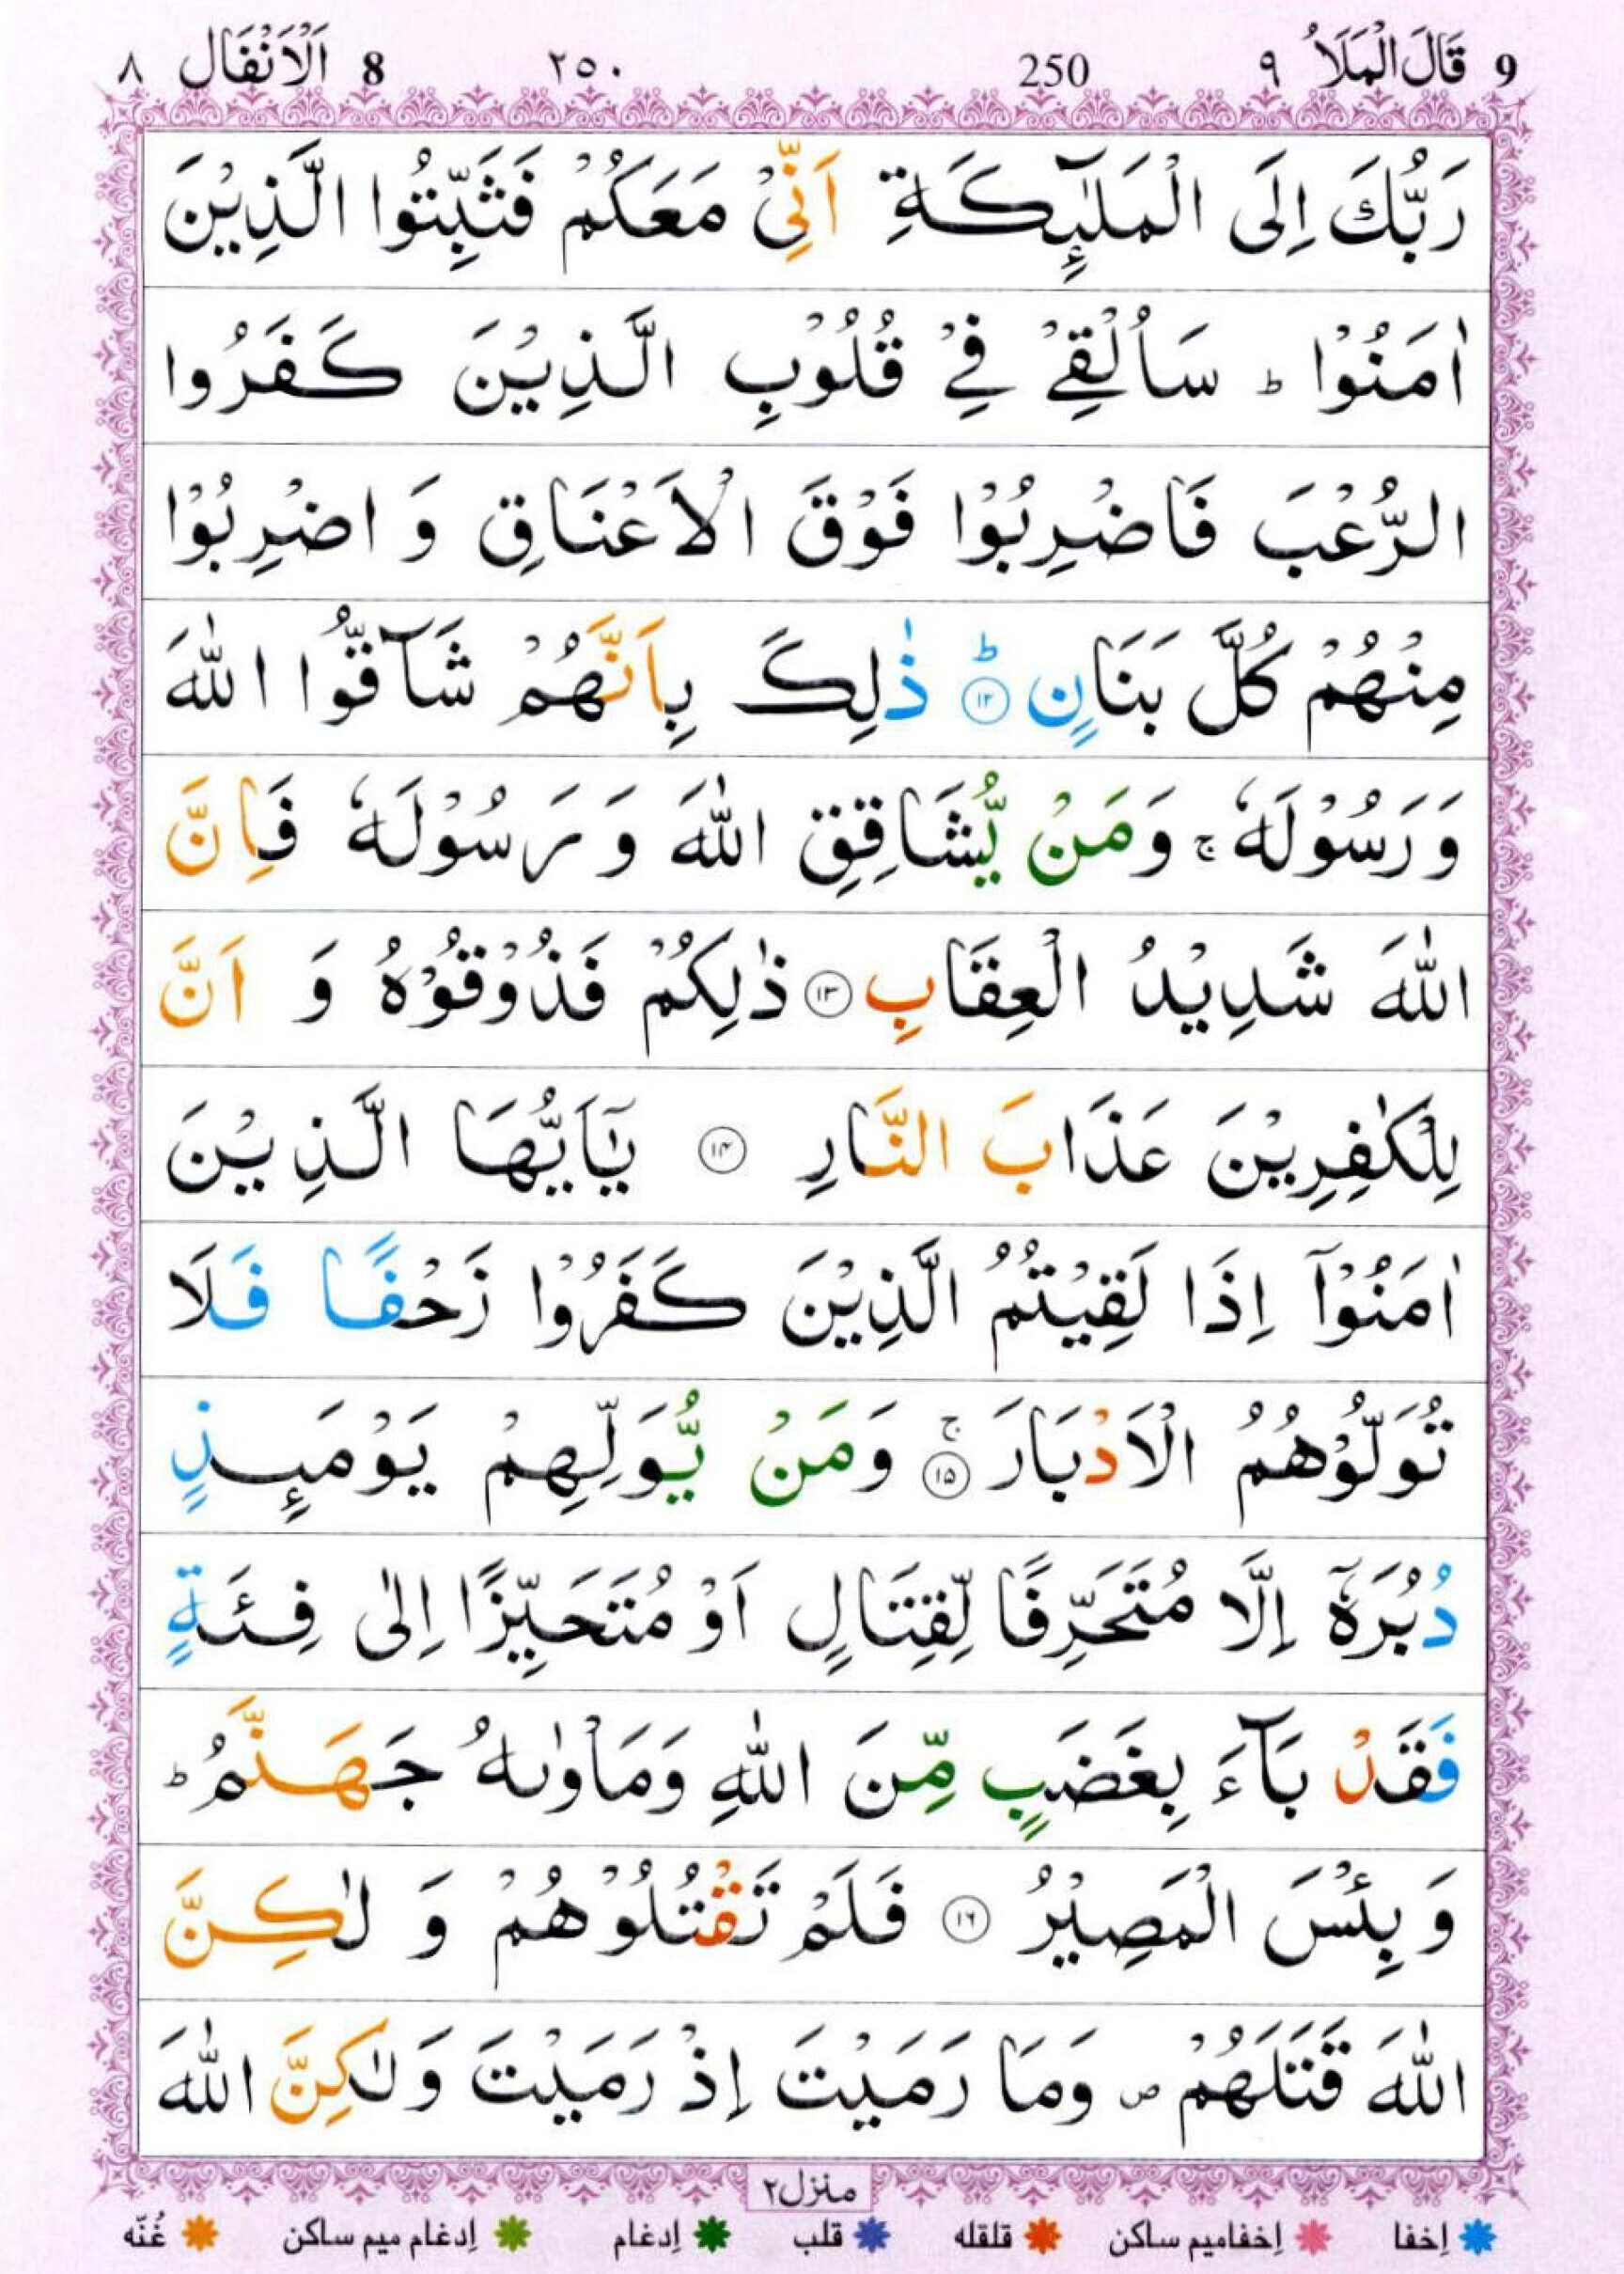 9 قَالَ الْمَلَاُ ٩ 250 ٢٥٠ 8 اَلْاَنْفَال ٨
رَبُّكَ اِلَى الْمَلٰٓئِكَةِ اَنِّیْ مَعَكُمْ فَثَبِّتُوا الَّذِیْنَ
اٰمَنُوْا ؕ سَاُلْقِیْ فِیْ قُلُوْبِ الَّذِیْنَ كَفَرُوا
الرُّعْبَ فَاضْرِبُوْا فَوْقَ الْاَعْنَاقِ وَ اضْرِبُوْا
مِنْهُمْ كُلَّ بَنَانٍ ؕ ۱۲ ذٰلِكَ بِاَنَّهُمْ شَآقُّوا اللّٰهَ
وَ رَسُوْلَهٗ ۚ وَ مَنْ یُّشَاقِقِ اللّٰهَ وَ رَسُوْلَهٗ فَاِنَّ
اللّٰهَ شَدِیْدُ الْعِقَابِ ۱۳ ذٰلِكُمْ فَذُوْقُوْهُ وَ اَنَّ
لِلْكٰفِرِیْنَ عَذَابَ النَّارِ ۱۴ یٰۤاَیُّهَا الَّذِیْنَ
اٰمَنُوْۤا اِذَا لَقِیْتُمُ الَّذِیْنَ كَفَرُوْا زَحْفًا فَلَا
تُوَلُّوْهُمُ الْاَدْبَارَ ۚ ۱۵ وَ مَنْ یُّوَلِّهِمْ یَوْمَىِٕذٍ
دُبُرَهٗۤ اِلَّا مُتَحَرِّفًا لِّقِتَالٍ اَوْ مُتَحَیِّزًا اِلٰى فِئَةٍ
فَقَدْ بَآءَ بِغَضَبٍ مِّنَ اللّٰهِ وَ مَاْوٰىهُ جَهَنَّمُ ؕ
وَ بِئْسَ الْمَصِیْرُ ۱۶ فَلَمْ تَقْتُلُوْهُمْ وَ لٰكِنَّ
اللّٰهَ قَتَلَهُمْ ۪ وَ مَا رَمَیْتَ اِذْ رَمَیْتَ وَ لٰكِنَّ اللّٰهَ
منزل۲
اِخفا اِخفامیم ساكن قلقله قلب اِدغام اِدغام میم ساكن غُنّه